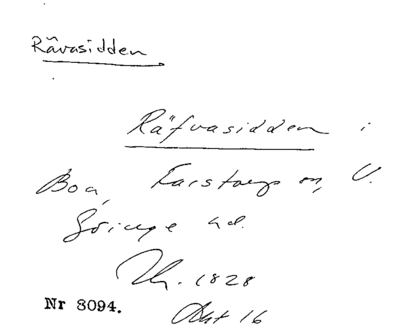 Rävasidden
Räfvasidden i
Boa, Farstorps sn, V.
Göinge hd.
1828
Nr 8094. Akt 16